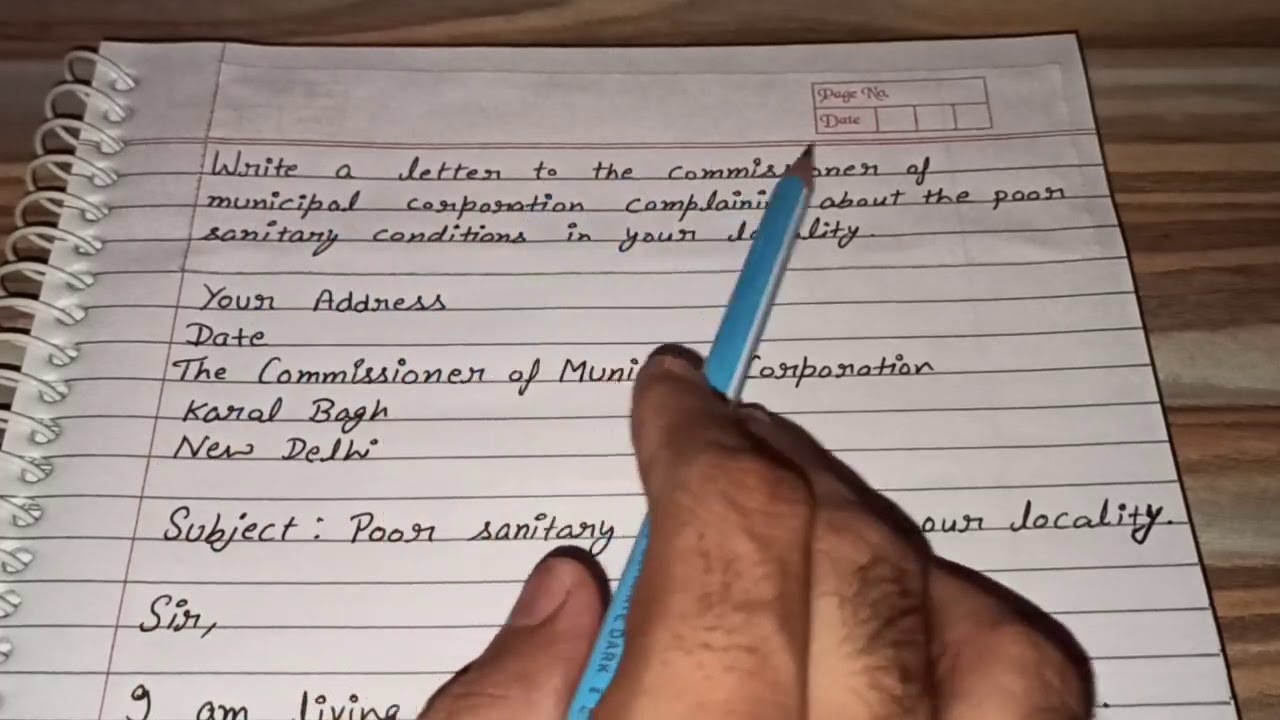 Page No.
Date
Write a letter to the commissioner of
municipal corporation complaining about the poor
sanitary conditions in your locality.
Your Address
Date
The Commissioner of Municipal Corporation
Karal Bagh
New Delhi
Subject: Poor sanitary our locality.
Sir,
I am living
DARK